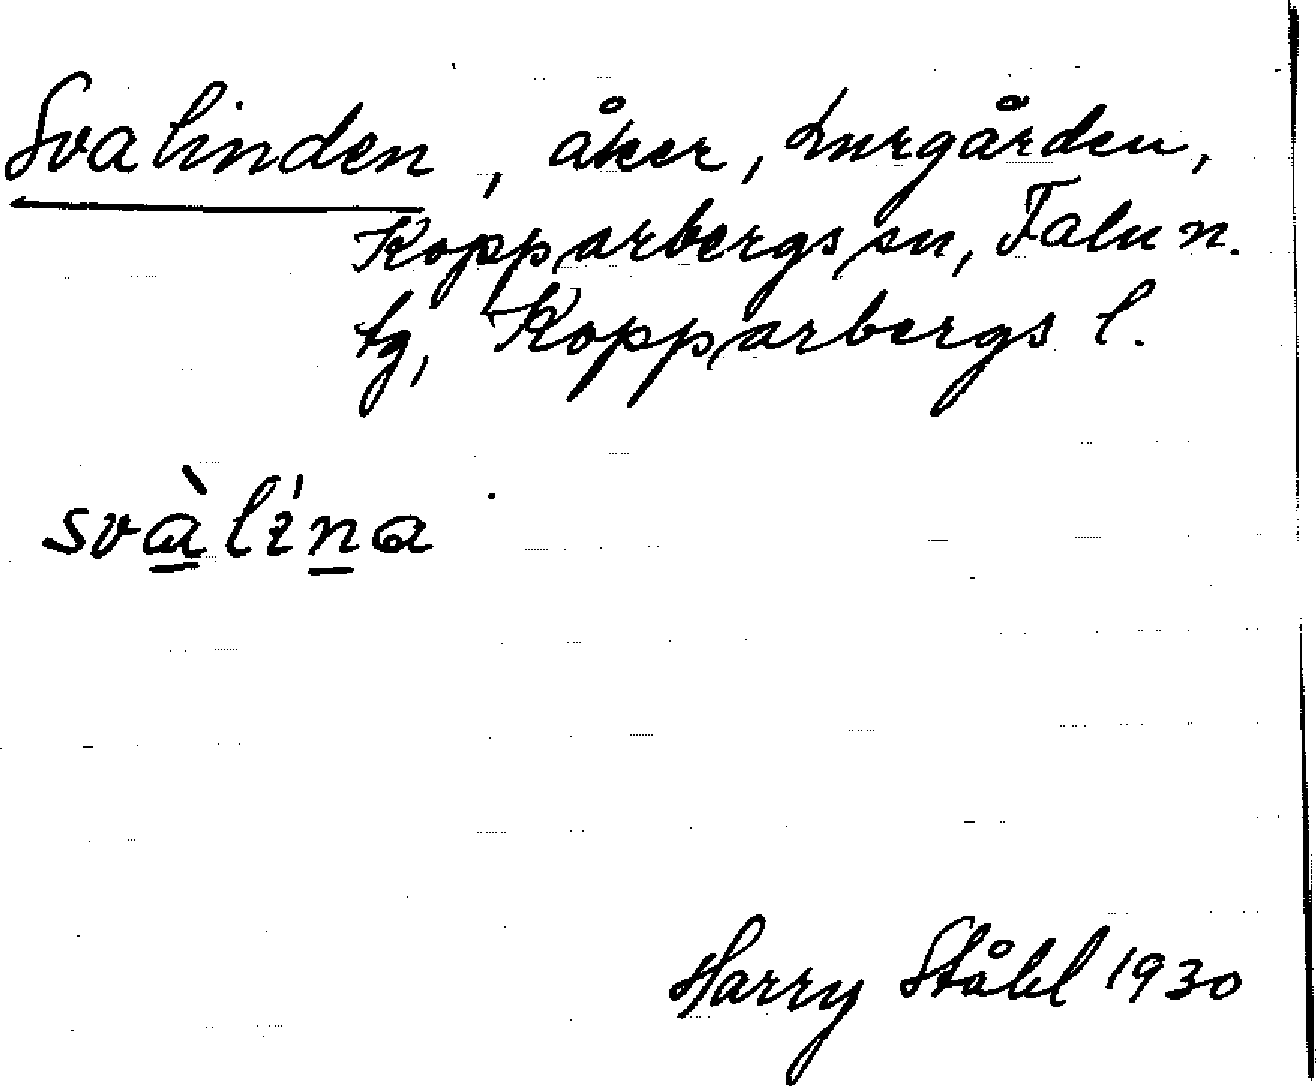 Svalinden, åker, Lurgården,
Kopparbergs sn, Falu n.
tg, Kopparbergs l.
svàli'na
Harry Ståhl 1930